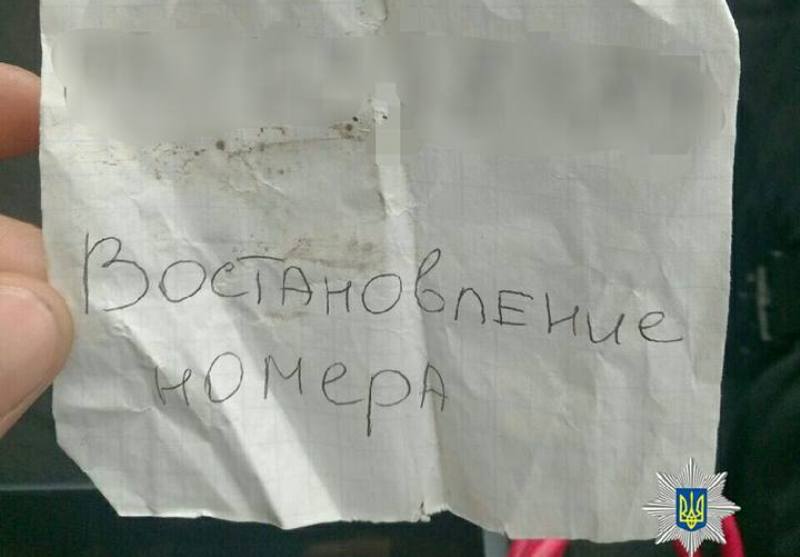 Востановление
номера